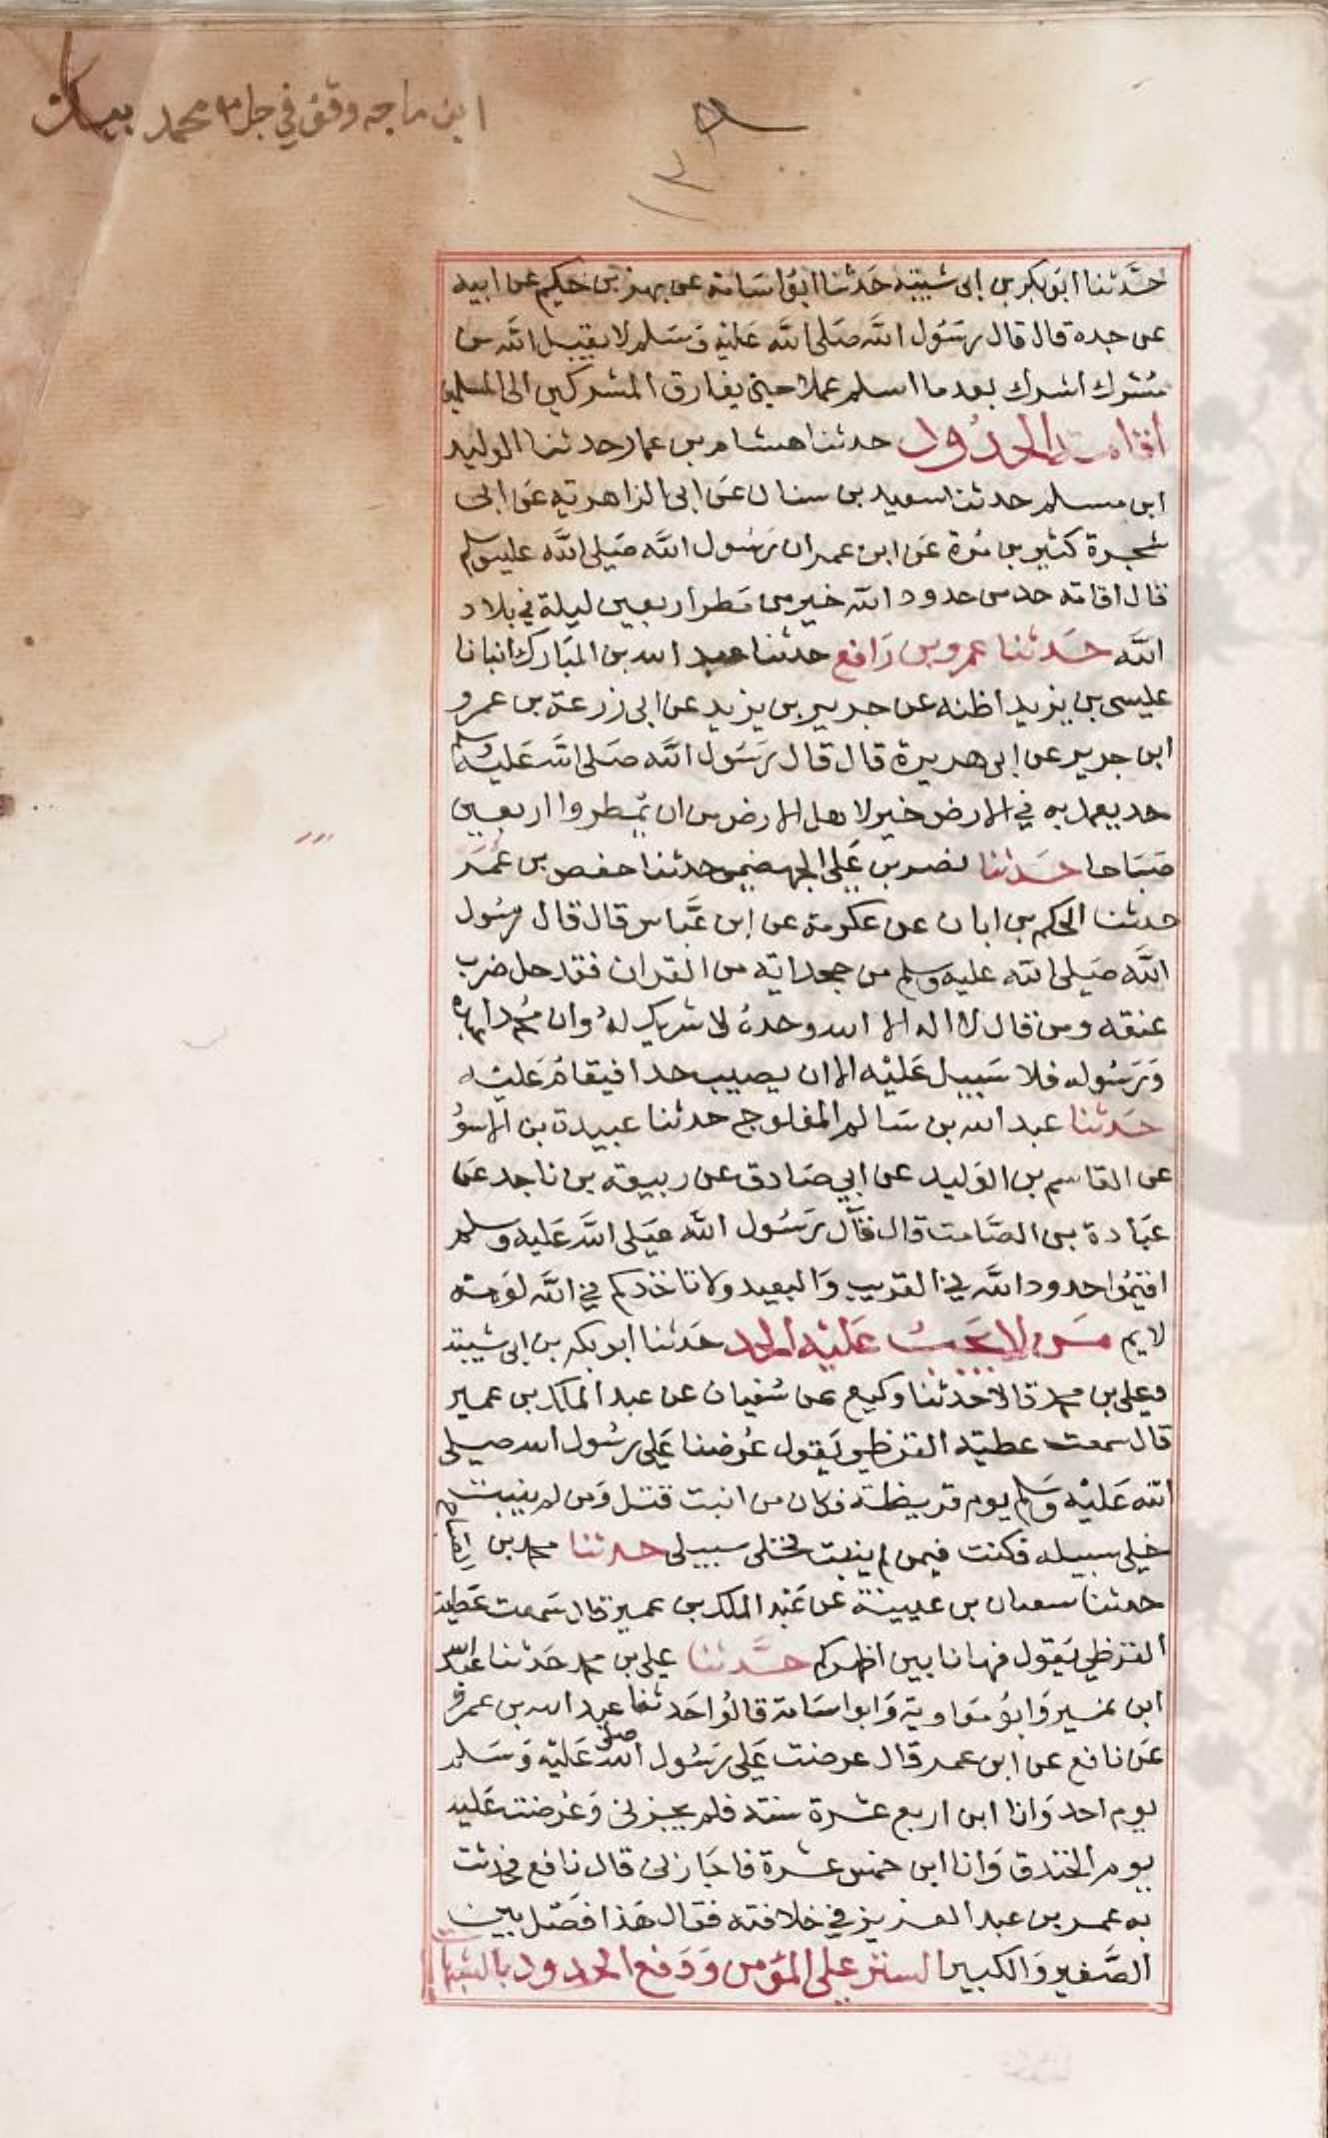 ابن ماجه وقف في جل محمد
حدثنا ابو بكر بن ابى شيبة حدثنا ابو اسامة عن بهز بن حكيم عن ابيه
عن جده قال قال رسول الله صلى الله عليه وسلم لا يقبل الله من
مشرك اشرك بعد ما اسلم عملا حتى يفارق المشركين الى المسلمين
اقامت الحدود حدثنا هشام بن عمار حدثنا الوليد
ابن مسلم حدثنا سعيد بن سنان عن ابى الزاهرية عن ابى
شجرة كثير بن مرة عن ابن عمر ان رسول الله صلى الله عليه وسلم
قال اقامة حد من حدود الله خير من مطر اربعين ليلة في بلاد
الله حدثنا عمرو بن رافع حدثنا عبد الله بن المبارك انبانا
عليسى بن يزيد اظنه عن جرير بن يزيد عن ابى زرعة بن عمرو
ابن جرير عن ابى هريرة قال قال رسول الله صلى الله عليه وسلم
حد يعمل به في الارض خير لاهل الارض من ان يمطروا اربعين
صباحا حدثنا نصر بن على الجهضمى حدثنا حفص بن عمر
حدثنا الحكم بن ابان عن عكرمة عن ابن عباس قال قال رسول
الله صلى الله عليه وسلم من جحد اية من القران فقد حل ضرب
عنقه ومن قال لا اله الا الله وحده لا شريك له وان محمدا عبده
ورسوله فلا سبيل عليه الا ان يصيب حدا فيقام عليه
حدثنا عبد الله بن سالم المفلوج حدثنا عبيدة بن الاسو
عن القاسم بن الوليد عن ابي صادق عن ربيعة بن ناجد عن
عبادة بن الصامت قال قال رسول الله صلى الله عليه وسلم
اقيموا حدود الله في القريب والبعيد ولا تاخذكم في الله لومة
لايم من لا يجب عليه الحد حدثنا ابو بكر بن ابى شيبة
وعلى بن محمد قالا حدثنا وكيع عن سفيان عن عبد الملك بن عمير
قال سمعت عطية القرظي يقول عرضنا على رسول الله صلى
الله عليه وسلم يوم قريظة فكان من انبت قتل ومن لم ينبت
خلي سبيله فكنت فيمن لم ينبت فخلى سبيلى حدثنا محمد بن
حدثنا سفيان بن عيينة عن عبد الملك بن عمير قال سمعت عطية
القرظي يقول فها انا بين اظهركم حدثنا على بن محمد حدثنا عبد الله
ابن نمير وابو معاوية وابو اسامة قالوا حدثنا عبيد الله بن عمر
عن نافع عن ابن عمر قال عرضت على رسول الله صلى عليه وسلم
يوم احد وانا ابن اربع عشرة سنة فلم يجزنى وعرضت عليه
يوم الخندق وانا ابن خمس عشرة فاجازنى قال نافع فحدثت
به عمر بن عبد العزيز في خلافته فقال هذا فصل بين
الصغير والكبير الستر على المؤمن ودفع الحدود بالشبهات